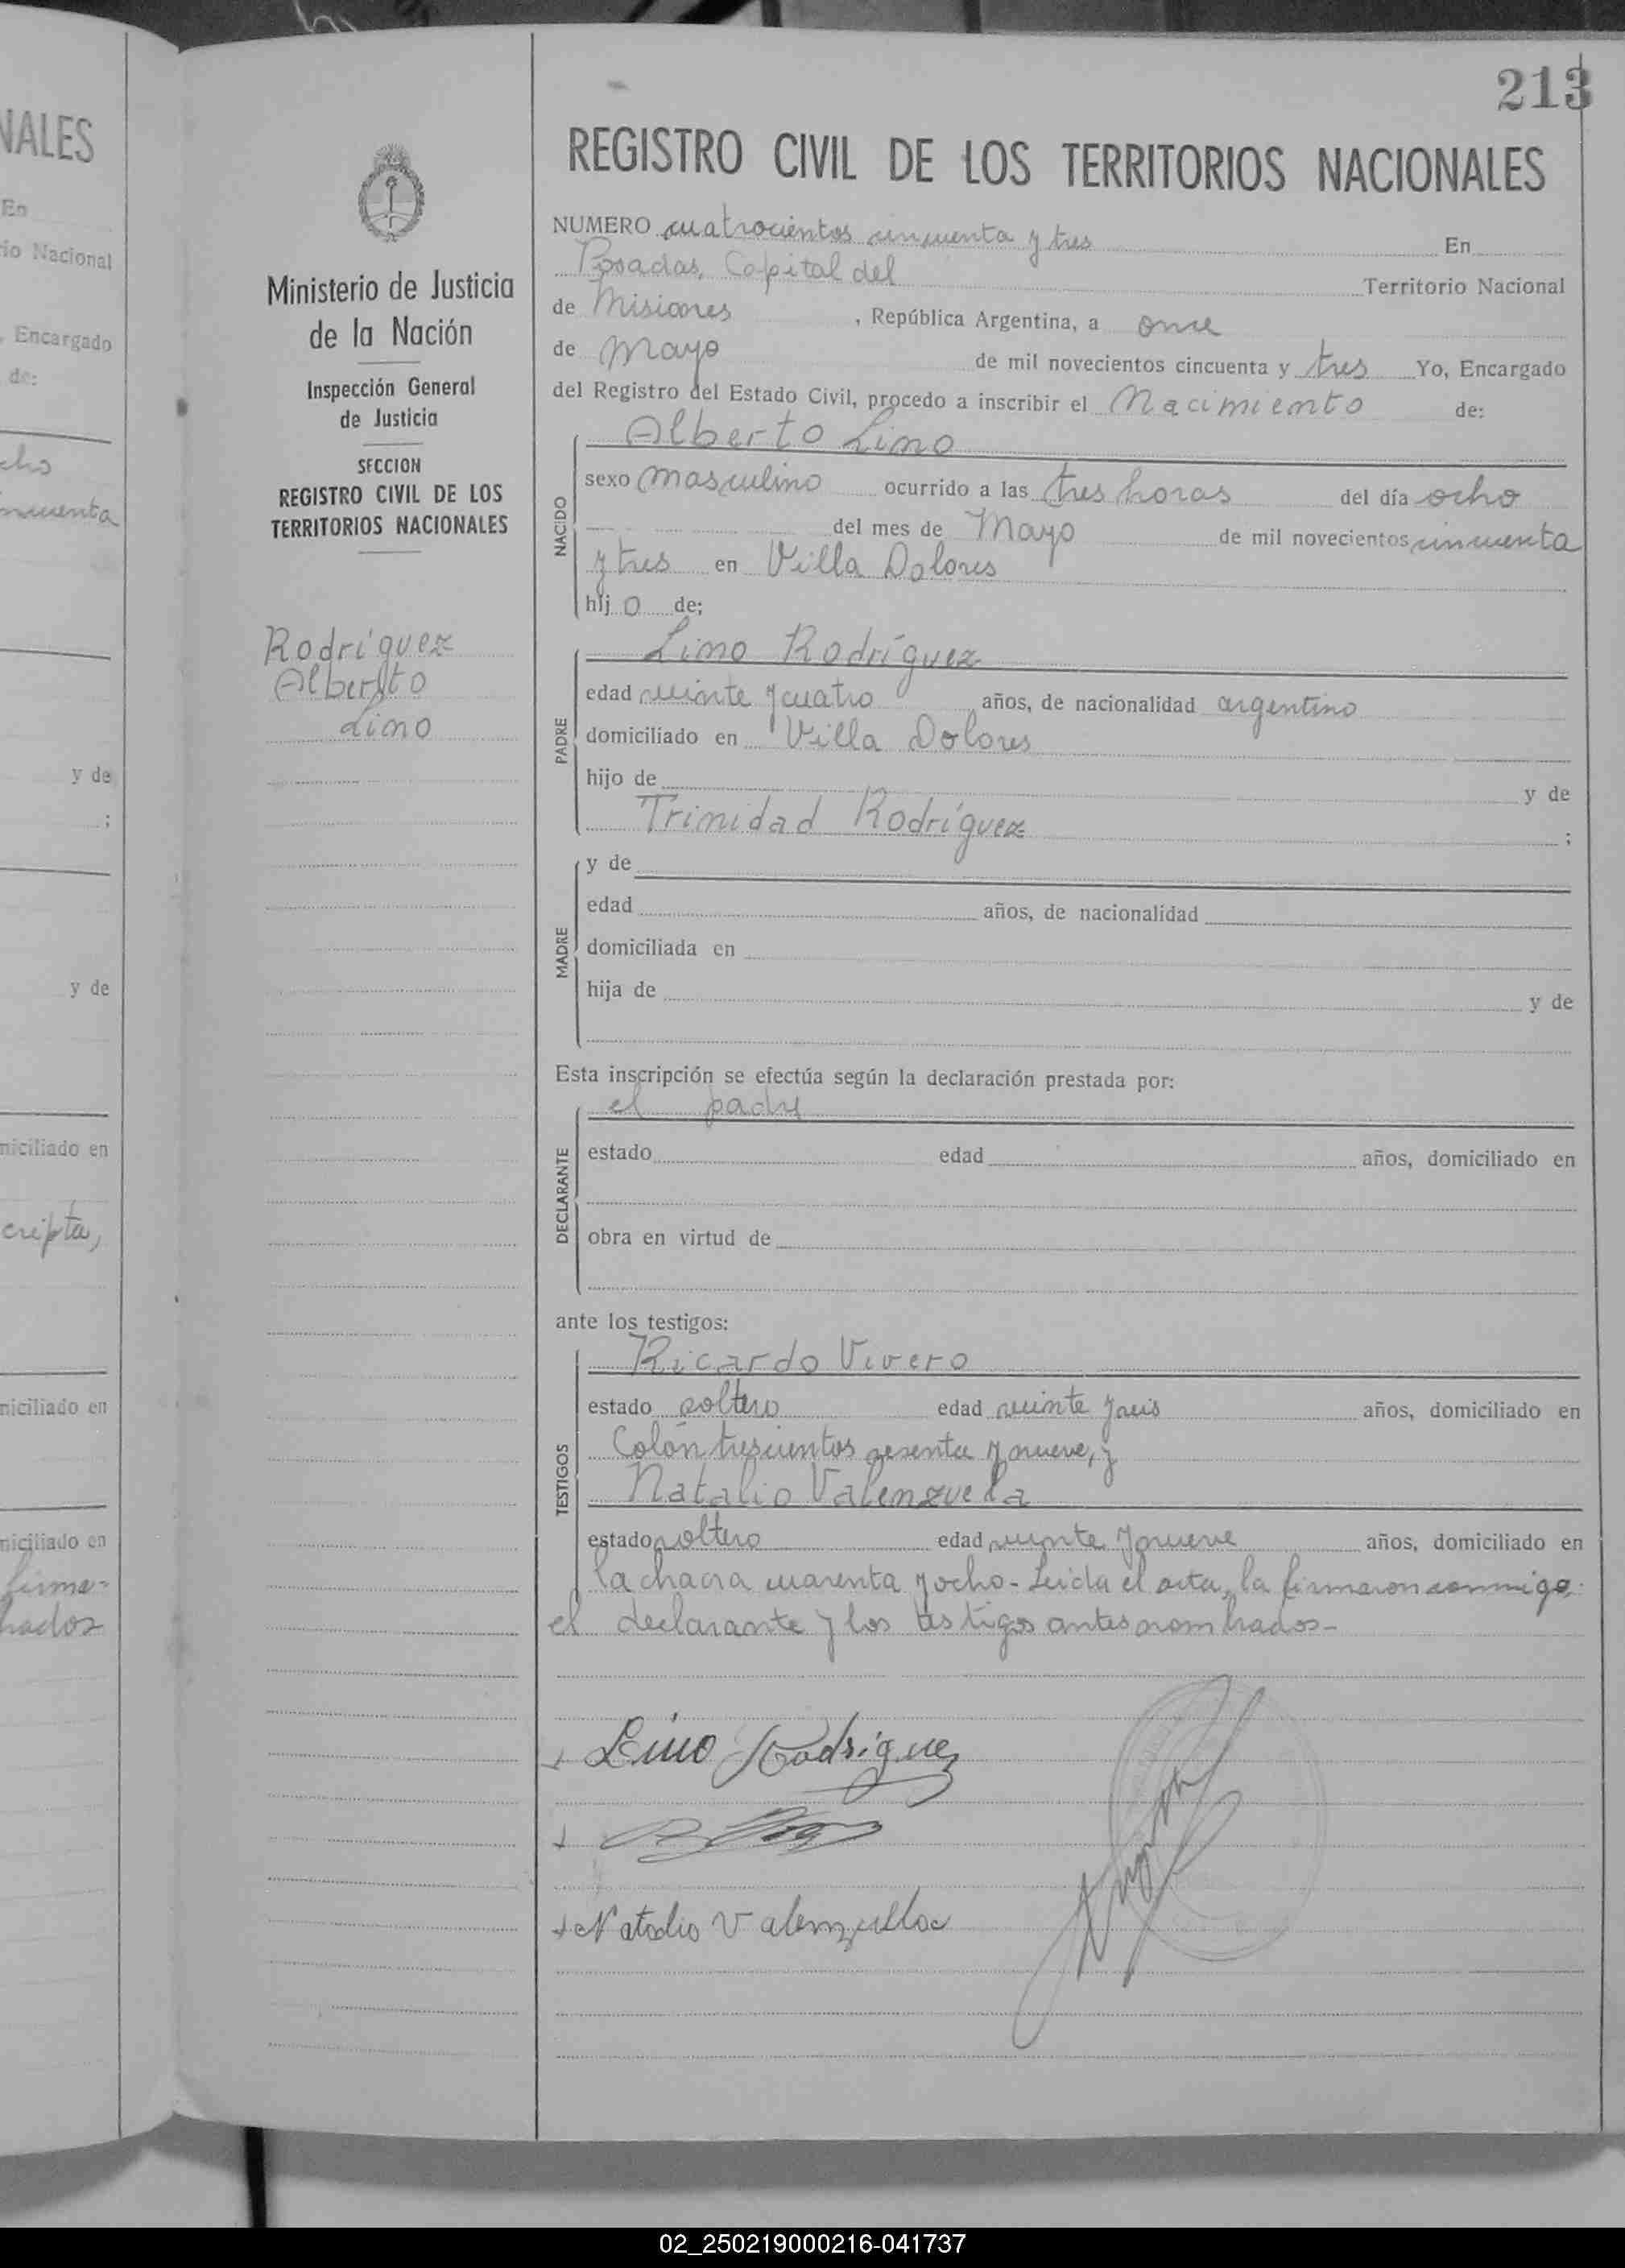 213
NALES
En
rio Nacional
, Encargado
de:
cho
ncuenta
y de
;
y de
niciliado en
cripta,
niciliado en
niciliado en
firma-
brados
Ministerio de Justicia
de la Nación
Inspección General
de Justicia
SECCION
REGISTRO CIVIL DE LOS
TERRITORIOS NACIONALES
Rodríguez
Alberto
Lino
REGISTRO CIVIL DE LOS TERRITORIOS NACIONALES
NUMERO cuatrocientos cincuenta y tres En
Posadas, Capital del Territorio Nacional
de Misiones , República Argentina, a once
de Mayo de mil novecientos cincuenta y tres Yo, Encargado
del Registro del Estado Civil, procedo a inscribir el Nacimiento de:
Alberto Lino
NACIDO
sexo masculino ocurrido a las tres horas del día ocho
del mes de Mayo de mil novecientos cincuenta
y tres en Villa Dolores
hij o de;
Lino Rodríguez
PADRE
edad veinte y cuatro años, de nacionalidad argentino
domiciliado en Villa Dolores
hijo de y de
Trinidad Rodríguez ;
MADRE
y de
edad años, de nacionalidad
domiciliada en
hija de y de
Esta inscripción se efectúa según la declaración prestada por:
el padre
DECLARANTE
estado edad años, domiciliado en
obra en virtud de
ante los testigos:
TESTIGOS
Ricardo Vivero
estado soltero edad veinte y seis años, domiciliado en
Colón trescientos sesenta y nueve, y
Natalio Valenzuela
estado soltero edad veinte y nueve años, domiciliado en
la chacra cuarenta y ocho - Leida el acta, la firmaron conmigo,
el declarante y los testigos antes nombrados -
Lino Rodriguez
Natalio Valenzuela
02_250219000216-041737